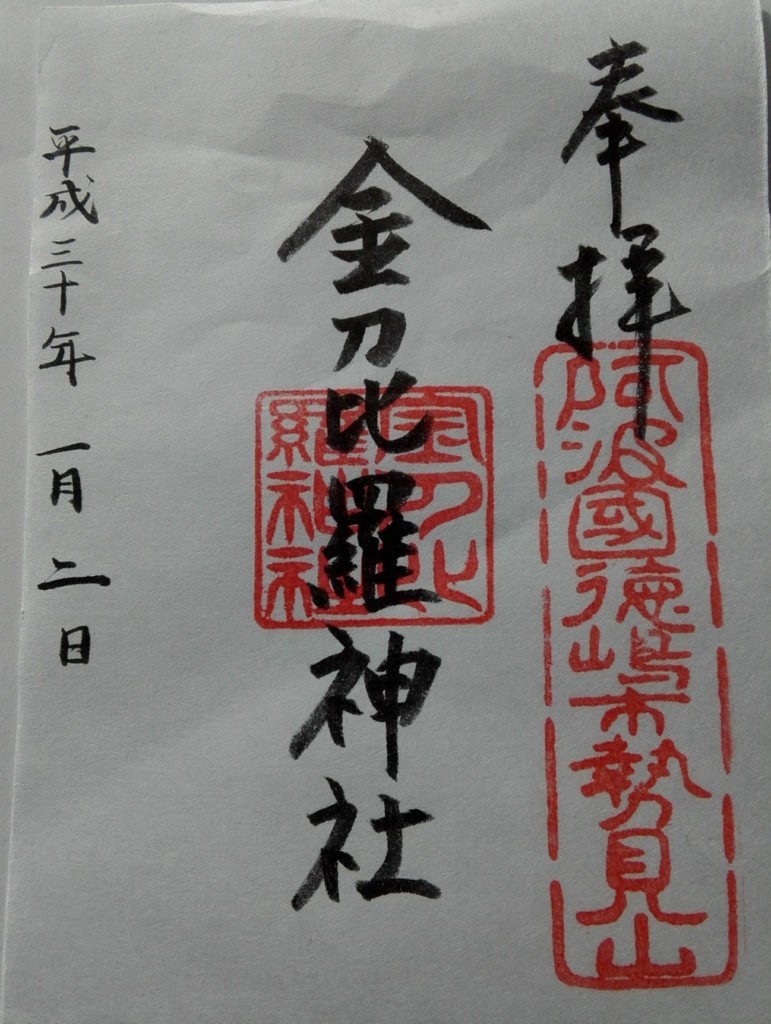 奉拝
阿波國徳嶋市勢見山
金刀比羅神社
金刀比羅神社
平成三十年一月二日